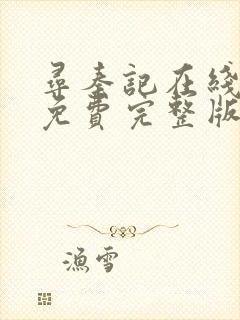 尋秦記在綫
免費完整版
漁雪